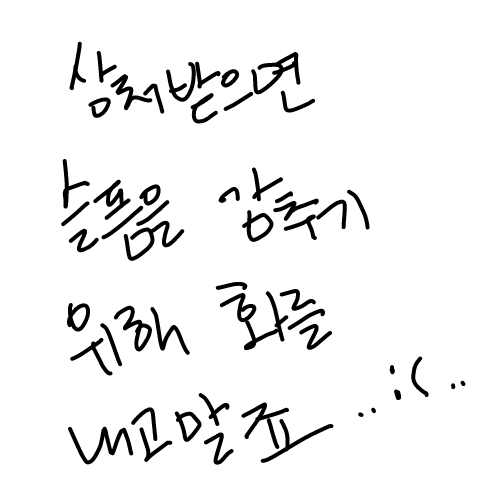 상처받으면
슬픔을 감추기
위해 화를
내고말죠 ..:(..